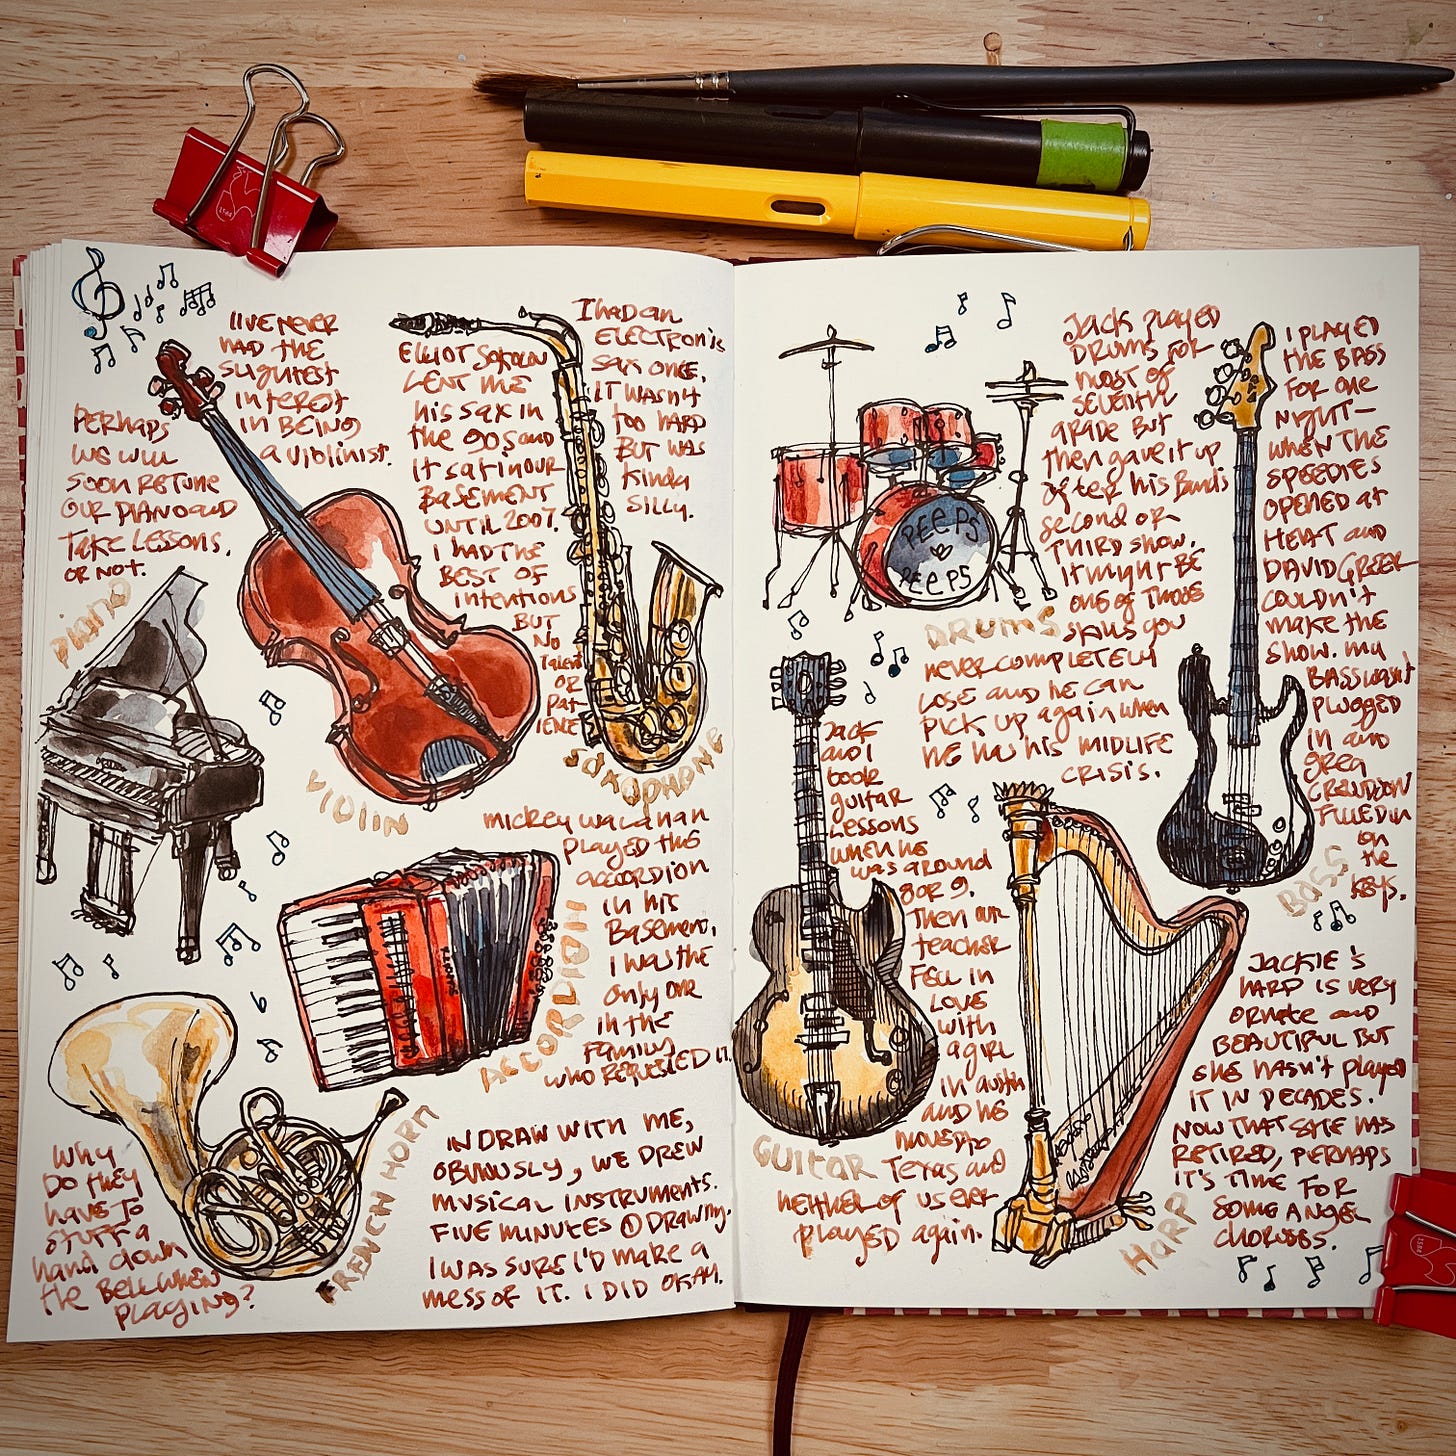 I'VE NEVER
HAD THE
SLIGHTEST
INTEREST
IN BEING
A VIOLINIST.
PERHAPS
WE WILL
SOON RETUNE
OUR PIANO AND
TAKE LESSONS.
OR NOT.
PIANO
VIOLIN
ELLIOT
LENT ME
HIS SAX IN
THE 90S AND
IT SAT IN OUR
BASEMENT
UNTIL 2007.
I HAD THE
BEST OF
INTENTIONS
BUT
NO
TALENT
OR
PAT-
IENCE
I HAD AN
ELECTRONIC
SAX ONCE.
IT WASN'T
TOO HARD
BUT WAS
KINDA
SILLY.
SAXOPHONE
MICKEY
PLAYED THE
ACCORDION
IN HIS
BASEMENT.
I WAS THE
ONLY ONE
IN THE
FAMILY
WHO REQUESTED IT.
ACCORDION
WHY
DO THEY
HAVE TO
STUFF A
HAND DOWN
THE BELL WHEN
PLAYING?
FRENCH HORN
IN DRAW WITH ME,
OBVIOUSLY, WE DREW
MUSICAL INSTRUMENTS.
FIVE MINUTES @ DRAWING.
I WAS SURE I'D MAKE A
MESS OF IT. I DID OKAY.
PEEPS
PEEPS
DRUMS
JACK PLAYED
DRUMS FOR
MOST OF
SEVENTH
GRADE BUT
THEN GAVE IT UP
AFTER HIS BAND'S
SECOND OR
THIRD SHOW.
IT MIGHT BE
ONE OF THOSE
SKILLS YOU
NEVER COMPLETELY
LOSE AND HE CAN
PICK UP AGAIN WHEN
HE HAS HIS MIDLIFE
CRISIS.
I PLAYED
THE BASS
FOR ONE
NIGHT—
WHEN THE
SPEEDIES
OPENED AT
HEAT AND
DAVID GREER
COULDN'T
MAKE THE
SHOW. MY
BASS WASN'T
PLUGGED
IN AND
GREG
FILLED IN
ON
THE
KEYS.
BASS
JACK
AND I
TOOK
GUITAR
LESSONS
WHEN HE
WAS AROUND
8 OR 9.
THEN OUR
TEACHER
FELL IN
LOVE
WITH
A GIRL
IN AUSTIN
AND HE
MOVED TO
TEXAS AND
NEITHER OF US EVER
PLAYED AGAIN.
GUITAR
JACKIE'S
HARP IS VERY
ORNATE AND
BEAUTIFUL BUT
SHE HASN'T PLAYED
IT IN DECADES.
NOW THAT SHE HAS
RETIRED, PERHAPS
IT'S TIME FOR
SOME ANGEL
CHORUSES.
HARP